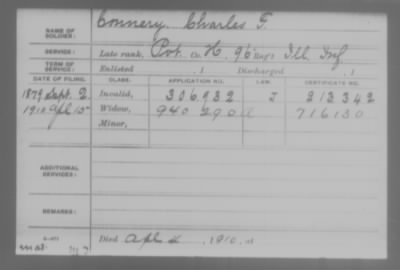 NAME OF SOLDIER: Connery, Charles F.
SERVICE: Late rank, Pvt. Co. H, 96 Reg't Ill. Inf.
TERM OF SERVICE: Enlisted , 1 Discharged , 1
DATE OF FILING. CLASS. APPLICATION NO. LAW. CERTIFICATE NO.
1879 Sept. 2 Invalid, 306.932 J 213342
1910 Apl 15 Widow, 940 290 716130
Minor,
ADDITIONAL SERVICES:
REMARKS:
Died Apl 2 , 1910, at